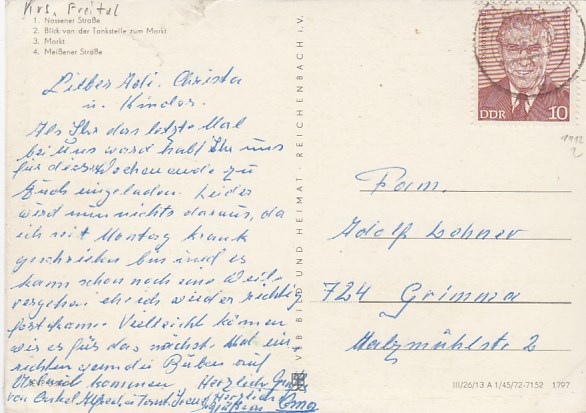 Krs. Freital
1. Nossener Straße
2. Blick von der Tankstelle zum Markt
3. Markt
4. Meißener Straße
Lieber Adi, Christa
u. Kinder.
Als Ihr das letzte Mal
bei uns ward habt Ihr uns
für dieses Wochenende zu
Euch eingeladen. Leider
wird nun nichts daraus, da
ich seit Montag krank
geschrieben bin und es
kann schon noch eine Weile
vergehen ehe ich wieder richtig
kann. Vielleicht können
wir es für das nächste Mal ein-
richten wenn die Buben auf
kommen. Herzliche Grüße
von Onkel Alfred u. Tante Herzliche
Grüßen Oma
VEB BILD UND HEIMAT · REICHENBACH I. V.
DDR 10
Fam.
Adolf Lohner
724 Grimma
Malzmühlstr 2
III/26/13 A 1/45/72-7152 1797